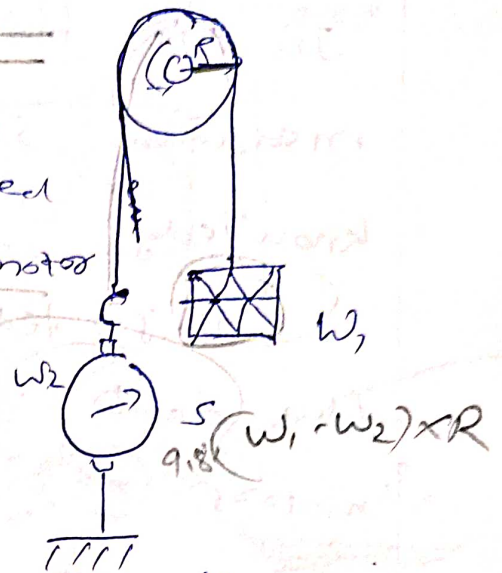 R
ed
motor
W₁
W₂
S
9.81(W₁-W₂)×R